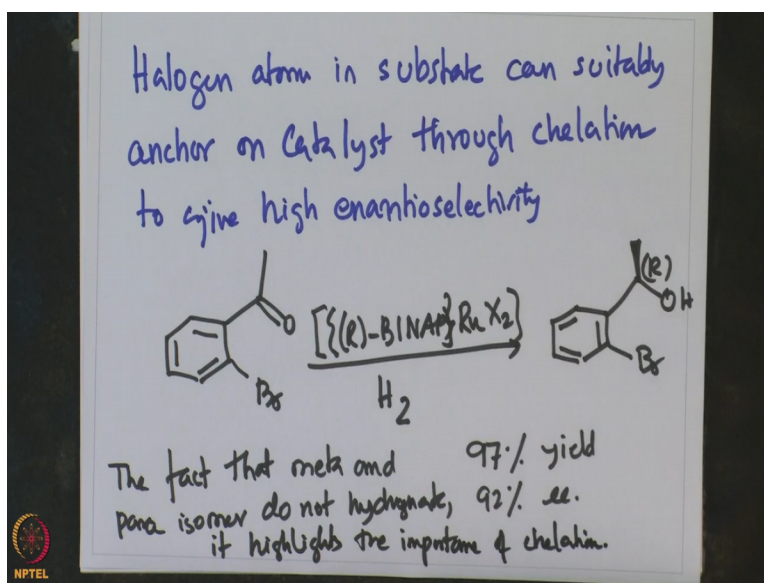 Halogen atom in substrate can suitably
anchor on Catalyst through chelation
to give high enantioselectivity
(R)
O
OH
[{(R)-BINAP}RuX2]
Br
Br
H2
The fact that meta and 97% yield
para isomer do not hydrogenate, 92% ee.
it highlights the importance of chelation.
NPTEL